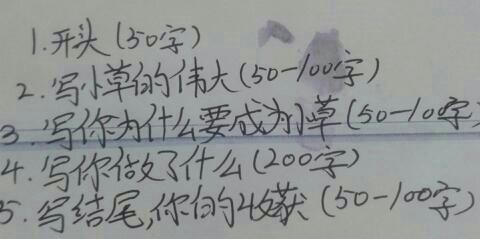 1.开头(50字)
2.写小草的伟大(50-100字)
3.写你为什么要成为小草(50-100字)
4.写你做了什么(200字)
5.写结尾,你的收获(50-100字)